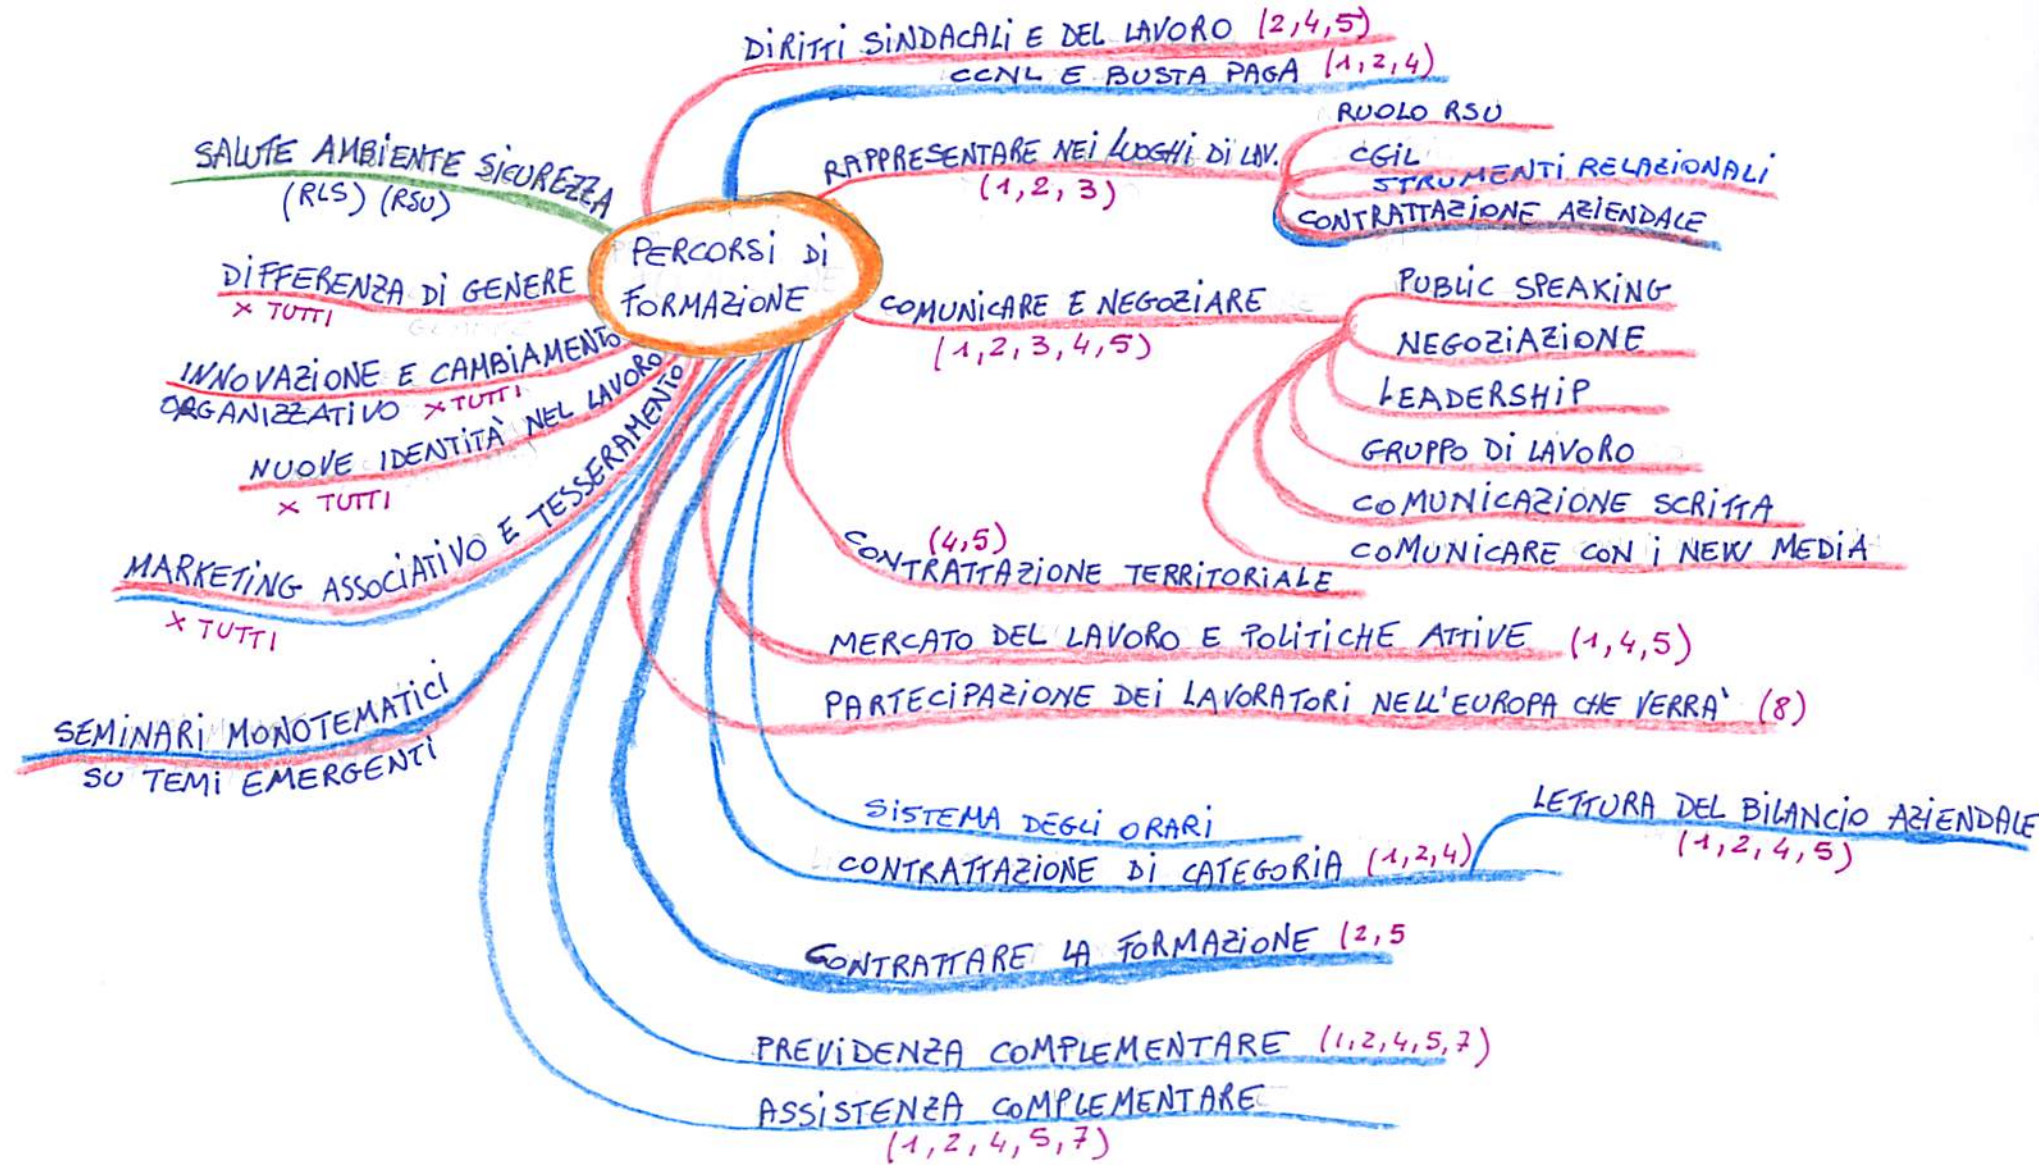 PERCORSI DI
FORMAZIONE
DIRITTI SINDACALI E DEL LAVORO (2,4,5)
CCNL E BUSTA PAGA (1,2,4)
RAPPRESENTARE NEI LUOGHI DI LAV.
(1,2,3)
RUOLO RSU
CGIL
STRUMENTI RELAZIONALI
CONTRATTAZIONE AZIENDALE
COMUNICARE E NEGOZIARE
(1,2,3,4,5)
PUBLIC SPEAKING
NEGOZIAZIONE
LEADERSHIP
GRUPPO DI LAVORO
COMUNICAZIONE SCRITTA
COMUNICARE CON I NEW MEDIA
(4,5)
CONTRATTAZIONE TERRITORIALE
MERCATO DEL LAVORO E POLITICHE ATTIVE (1,4,5)
PARTECIPAZIONE DEI LAVORATORI NELL'EUROPA CHE VERRA' (8)
SISTEMA DEGLI ORARI
CONTRATTAZIONE DI CATEGORIA (1,2,4)
LETTURA DEL BILANCIO AZIENDALE
(1,2,4,5)
CONTRATTARE LA FORMAZIONE (2,5
PREVIDENZA COMPLEMENTARE (1,2,4,5,7)
ASSISTENZA COMPLEMENTARE
(1,2,4,5,7)
SALUTE AMBIENTE SICUREZZA
(RLS) (RSU)
DIFFERENZA DI GENERE
X TUTTI
INNOVAZIONE E CAMBIAMENTO
ORGANIZZATIVO X TUTTI
NUOVE IDENTITÀ NEL LAVORO
X TUTTI
MARKETING ASSOCIATIVO E TESSERAMENTO
X TUTTI
SEMINARI MONOTEMATICI
SU TEMI EMERGENTI